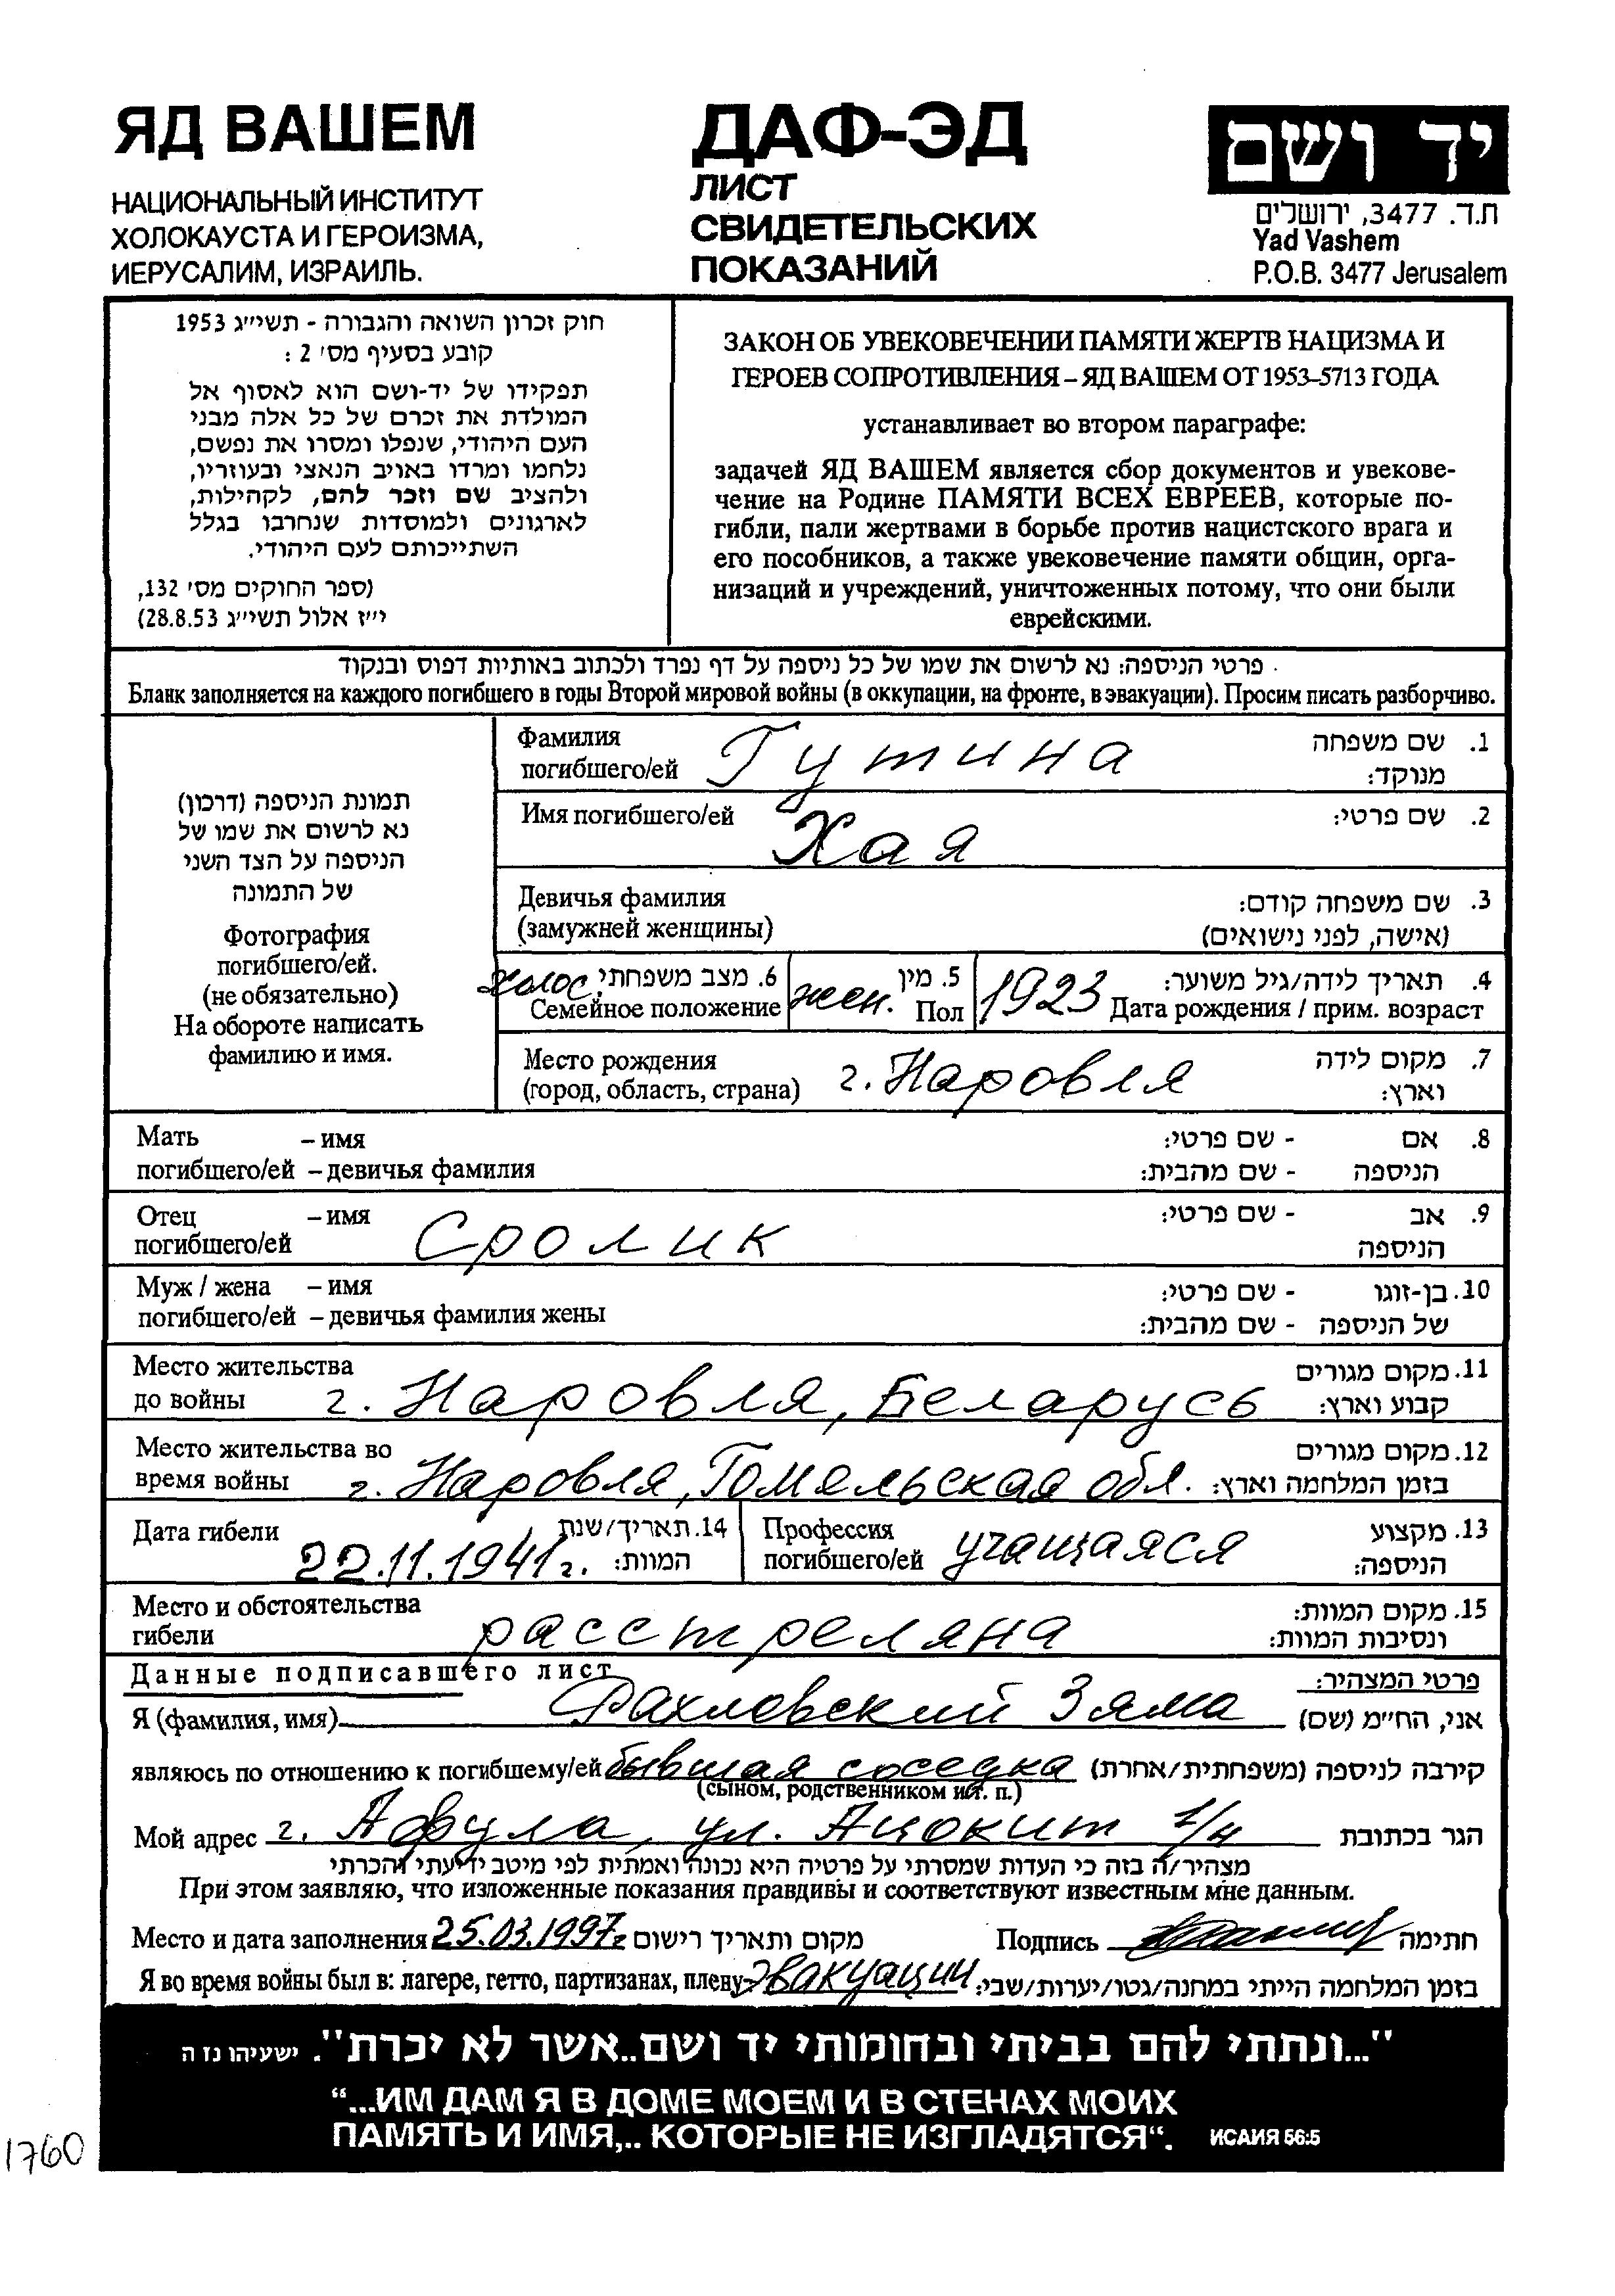 ЯД ВАШЕМ
НАЦИОНАЛЬНЫЙ ИНСТИТУТ
ХОЛОКАУСТА И ГЕРОИЗМА,
ИЕРУСАЛИМ, ИЗРАИЛЬ.
ДАФ-ЭД
ЛИСТ
СВИДЕТЕЛЬСКИХ
ПОКАЗАНИЙ
יד ושם
ת.ד. 3477, ירושלים
Yad Vashem
P.O.B. 3477 Jerusalem
חוק זכרון השואה והגבורה - תשי״ג 1953
קובע בסעיף מס׳ 2 :
תפקידו של יד-ושם הוא לאסוף אל
המולדת את זכרם של כל אלה מבני
העם היהודי, שנפלו ומסרו את נפשם,
נלחמו ומרדו באויב הנאצי ובעוזריו,
ולהציב שם וזכר להם, לקהילות,
לארגונים ולמוסדות שנחרבו בגלל
השתייכותם לעם היהודי.
(ספר החוקים מס׳ 132,
י״ז אלול תשי״ג 28.8.53)
ЗАКОН ОБ УВЕКОВЕЧЕНИИ ПАМЯТИ ЖЕРТВ НАЦИЗМА И
ГЕРОЕВ СОПРОТИВЛЕНИЯ – ЯД ВАШЕМ ОТ 1953–5713 ГОДА
устанавливает во втором параграфе:
задачей ЯД ВАШЕМ является сбор документов и увекове-
чение на Родине ПАМЯТИ ВСЕХ ЕВРЕЕВ, которые по-
гибли, пали жертвами в борьбе против нацистского врага и
его пособников, а также увековечение памяти общин, орга-
низаций и учреждений, уничтоженных потому, что они были
еврейскими.
פרטי הניספה: נא לרשום את שמו של כל ניספה על דף נפרד ולכתוב באותיות דפוס ובנקוד
Бланк заполняется на каждого погибшего в годы Второй мировой войны (в оккупации, на фронте, в эвакуации). Просим писать разборчиво.
תמונת הניספה (דרכון)
נא לרשום את שמו של
הניספה על הצד השני
של התמונה
Фотография
погибшего/ей.
(не обязательно)
На обороте написать
фамилию и имя.
Фамилия
погибшего/ей Гутина
1. שם משפחה
מנוקד:
Имя погибшего/ей Хая
2. שם פרטי:
Девичья фамилия
(замужней женщины)
3. שם משפחה קודם:
(אישה, לפני נישואים)
холос. 6. מצב משפחתי:
Семейное положение
жен. 5. מין
Пол
1923 4. תאריך לידה/גיל משוער:
Дата рождения / прим. возраст
Место рождения
(город, область, страна) г. Наровля
7. מקום לידה
וארץ:
Мать – имя
погибшего/ей – девичья фамилия
8. אם - שם פרטי:
הניספה - שם מהבית:
Отец – имя
погибшего/ей Сролик
9. אב - שם פרטי:
הניספה
Муж / жена – имя
погибшего/ей – девичья фамилия жены
10. בן-זוגו - שם פרטי:
של הניספה - שם מהבית:
Место жительства
до войны г. Наровля, Беларусь
11. מקום מגורים
קבוע וארץ:
Место жительства во
время войны г. Наровля, Гомельская обл.
12. מקום מגורים
בזמן המלחמה וארץ:
Дата гибели 22.11.1941 г.
14. תאריך/שנת
המוות:
Профессия
погибшего/ей учащаяся
13. מקצוע
הניספה:
Место и обстоятельства
гибели расстреляна
15. מקום המוות:
ונסיבות המוות:
Данные подписавшего лист
פרטי המצהיר:
Я (фамилия, имя) Рахловский Зяма אני, הח״מ (שם)
являюсь по отношению к погибшему/ей бывшая соседка קירבה לניספה (משפחתית/אחרת)
(сыном, родственником и т. п.)
Мой адрес г. Афула, ул. Ацокит 1/4 הגר בכתובת
מצהיר/ה בזה כי העדות שמסרתי על פרטיה היא נכונה ואמתית לפי מיטב ידיעתי והכרתי
При этом заявляю, что изложенные показания правдивы и соответствуют известным мне данным.
Место и дата заполнения 25.03.1997г מקום ותאריך רישום Подпись חתימה
Я во время войны был в: лагере, гетто, партизанах, плену эвакуации בזמן המלחמה הייתי במחנה/גטו/יערות/שבי:
"...ונתתי להם בביתי ובחומותי יד ושם..אשר לא יכרת". ישעיהו נז ה
“...ИМ ДАМ Я В ДОМЕ МОЕМ И В СТЕНАХ МОИХ
ПАМЯТЬ И ИМЯ,.. КОТОРЫЕ НЕ ИЗГЛАДЯТСЯ“. ИСАИЯ 56:5
1760